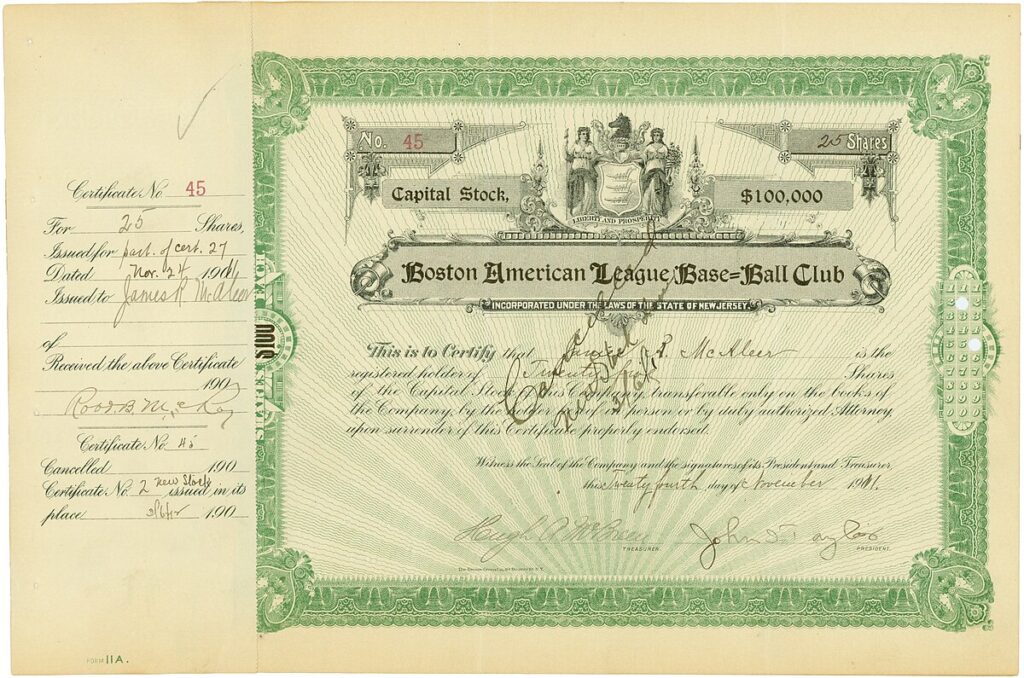 Certificate No. 45
For 25 Shares
Issued for part. of cert. 27
Dated Nov. 24 1911
Issued to James R McAleer
of
Received the above Certificate
190
Certificate No. 45
Cancelled 190
Certificate No. 2 new stock issued in its
place 190
FORM 11A.
SHARES $100 EACH
No. 45
25 Shares
Capital Stock,
$100,000
LIBERTY AND PROSPERITY
Boston American League Base=Ball Club
INCORPORATED UNDER THE LAWS OF THE STATE OF NEW JERSEY
This is to Certify that James R. McAleer is the
registered holder of Twenty Shares
of the Capital Stock of this Company, transferable only on the books of
the Company, by the holder in person or by duly authorized Attorney,
upon surrender of this Certificate properly endorsed.
Cancelled
Witness the Seal of the Company and the signatures of its President and Treasurer,
this Twenty fourth day of November 1911.
Hugh A McBreen
TREASURER.
John I Taylor
PRESIDENT.